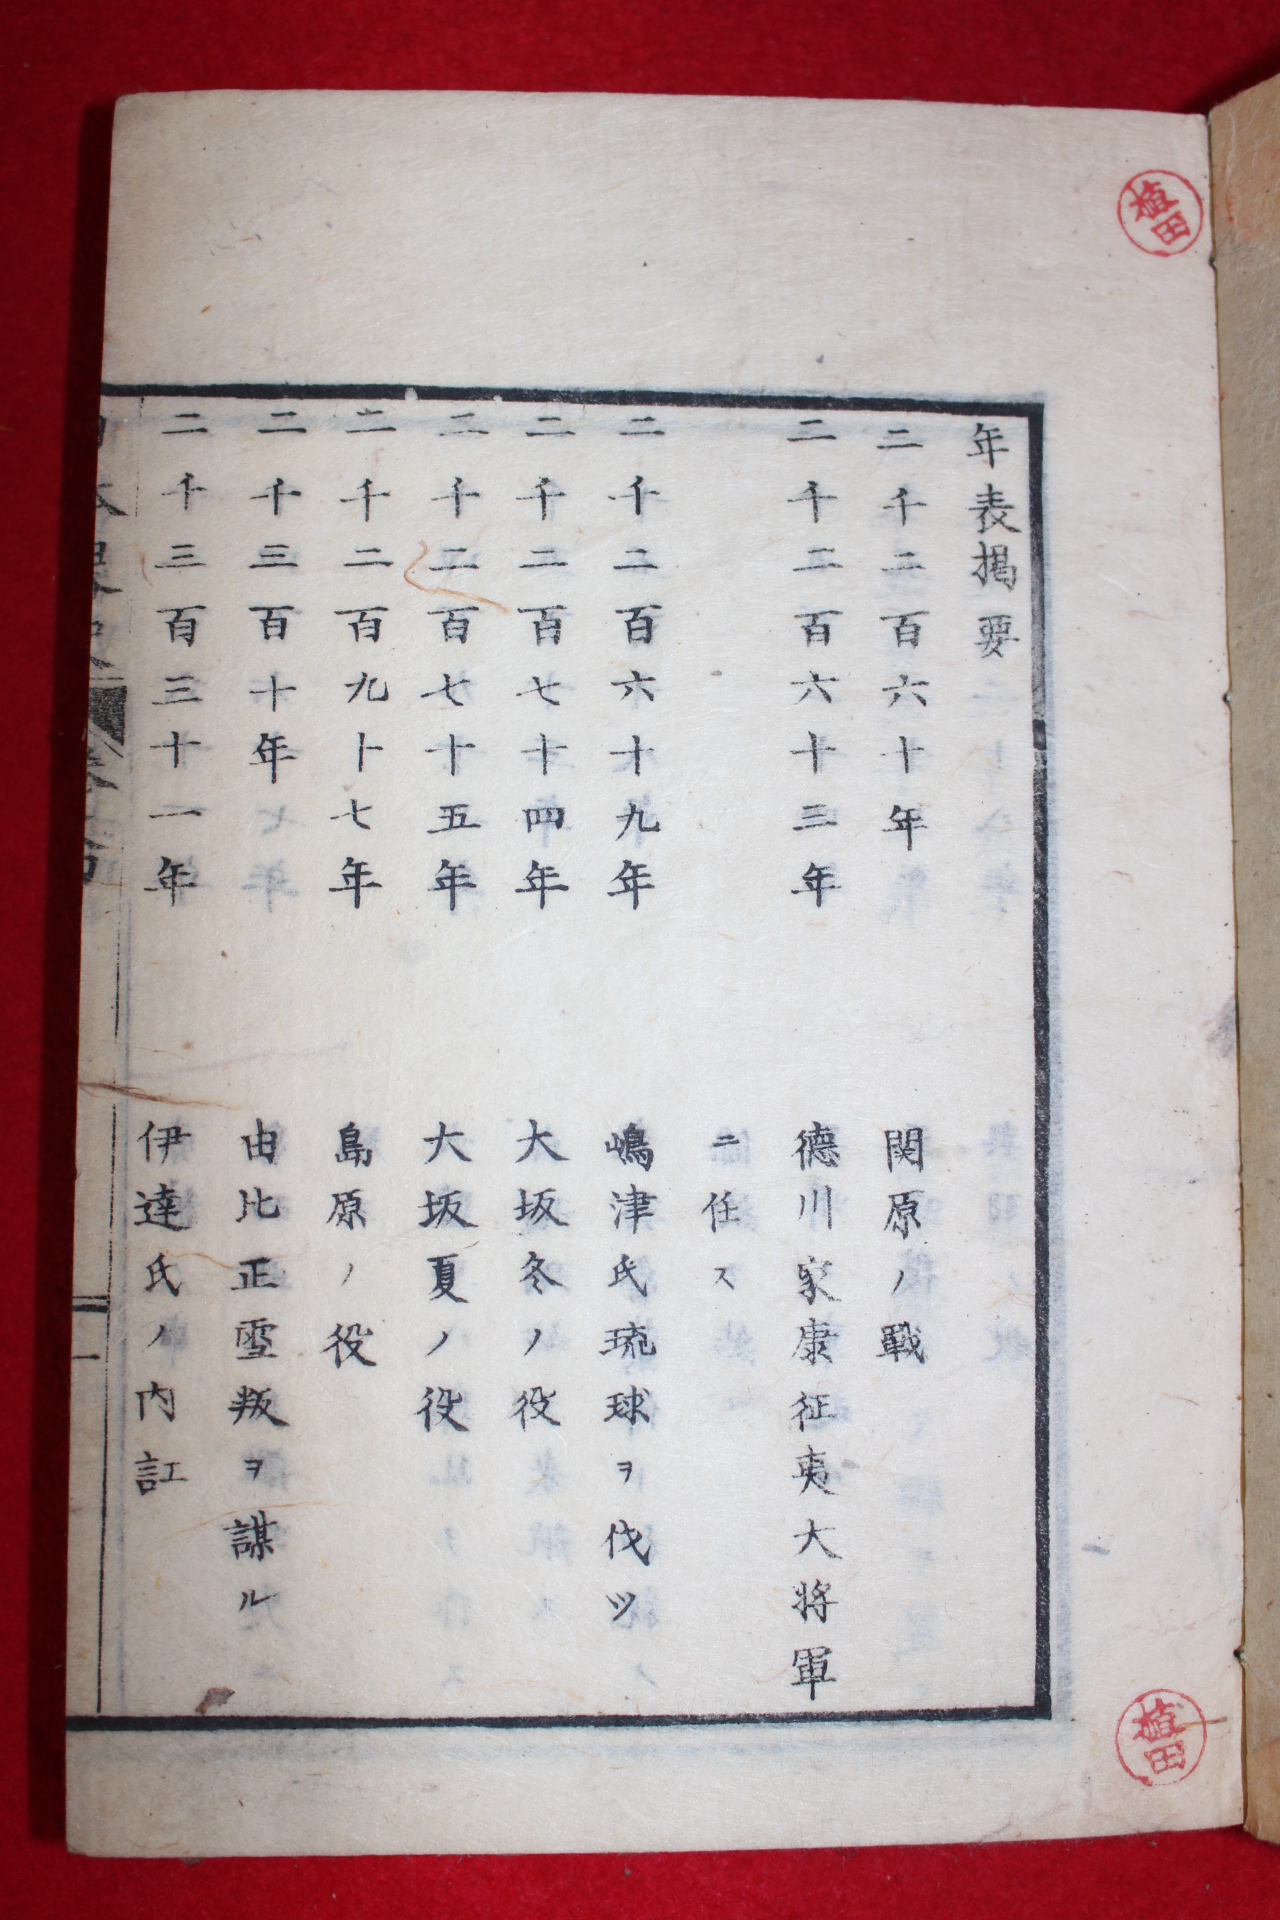 年表掲要
二千二百六十年 関原ノ戰
二千二百六十三年 德川家康征夷大將軍
ニ任ス
二千二百六十九年 嶋津氏琉球ヲ伐ツ
二千二百七十四年 大坂冬ノ役
二千二百七十五年 大坂夏ノ役
二千二百九十七年 島原ノ役
二千三百十年 由比正雪叛ヲ謀ル
二千三百三十一年 伊達氏ノ内訌
植田
植田